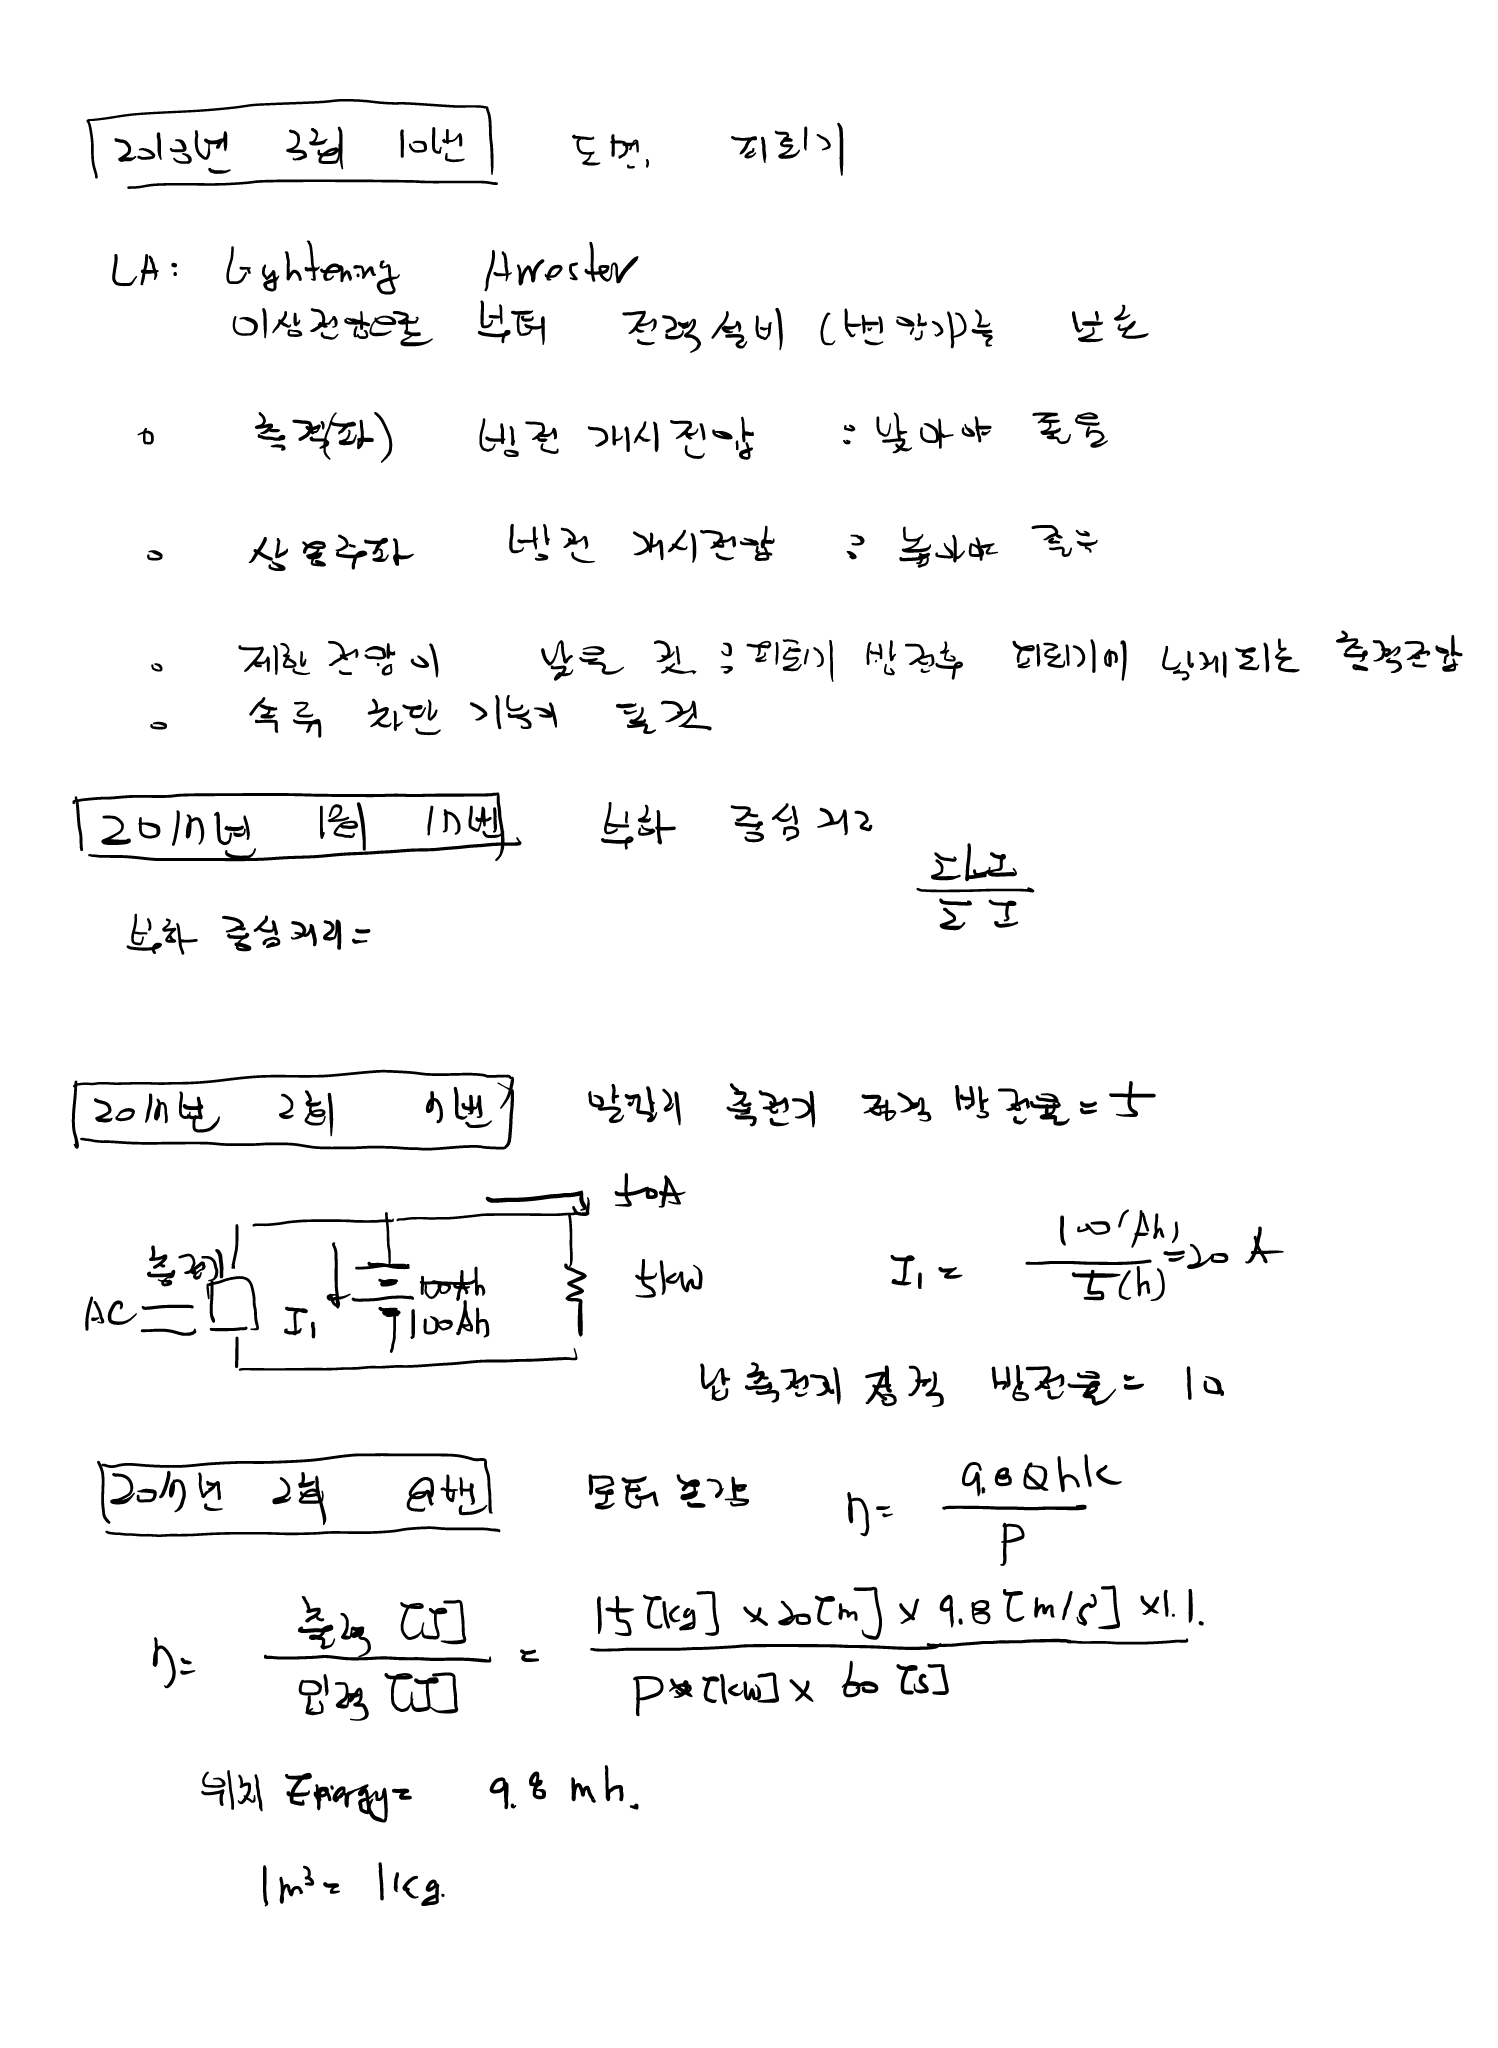 2013년 3회 10번 도면, 피뢰기
LA: Lyhtening Arrester
이상전압으로 부터 전력설비 (변압기)를 보호
o 충격(파) 방전 개시전압 : 낮아야 좋음
o 상용주파 방전 개시전압 : 높아야 좋음
o 제한전압이 낮을 것 : 피뢰기 방전후 피뢰기에 남게되는 충격전압
o 속류 차단 기능이 될 것
2017년 1회 17번 부하 중심 거리
ΣLI
Σ I
부하 중심거리 =
2017년 2회 7번 알칼리 축전지 정격 방전률 = 5
50A
충전기
AC
I₁
100Ah
100Ah
5kW
I₁ = 100(Ah) / 5(h) = 20 A
납 축전지 정격 방전률 = 10
2017년 2회 8번 모터 효율 η = 9.8QhK / P
η = 출력 [J] / 입력 [J] = 15[kg] × 20[m] × 9.8[m/s²] × 1.1. / P [kW] × 60 [s]
위치 Energy = 9.8 mh.
1m³ = 1kg.